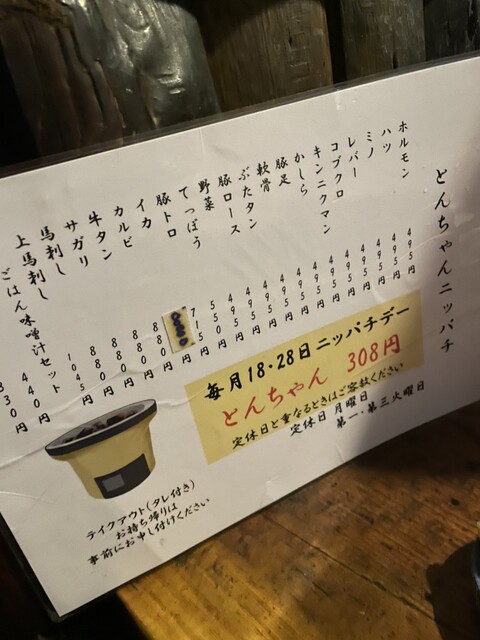 とんちゃんニッパチ
ホルモン 495円
ハツ 495円
ミノ 495円
レバー 495円
コブクロ 495円
キンニクマン 495円
かしら 495円
豚足 495円
軟骨 495円
ぶたタン 495円
豚ロース
野菜
てっぽう
豚トロ
イカ
カルビ
牛タン
サガリ
馬刺し
上馬刺し
ごはん味噌汁セット
毎月18・28日ニッパチデー
とんちゃん 308円
定休日と重なるときはご容赦ください
定休日 月曜日
第一・第三火曜日
テイクアウト(タレ付き)
お持ち帰りは
事前にお申し付けください